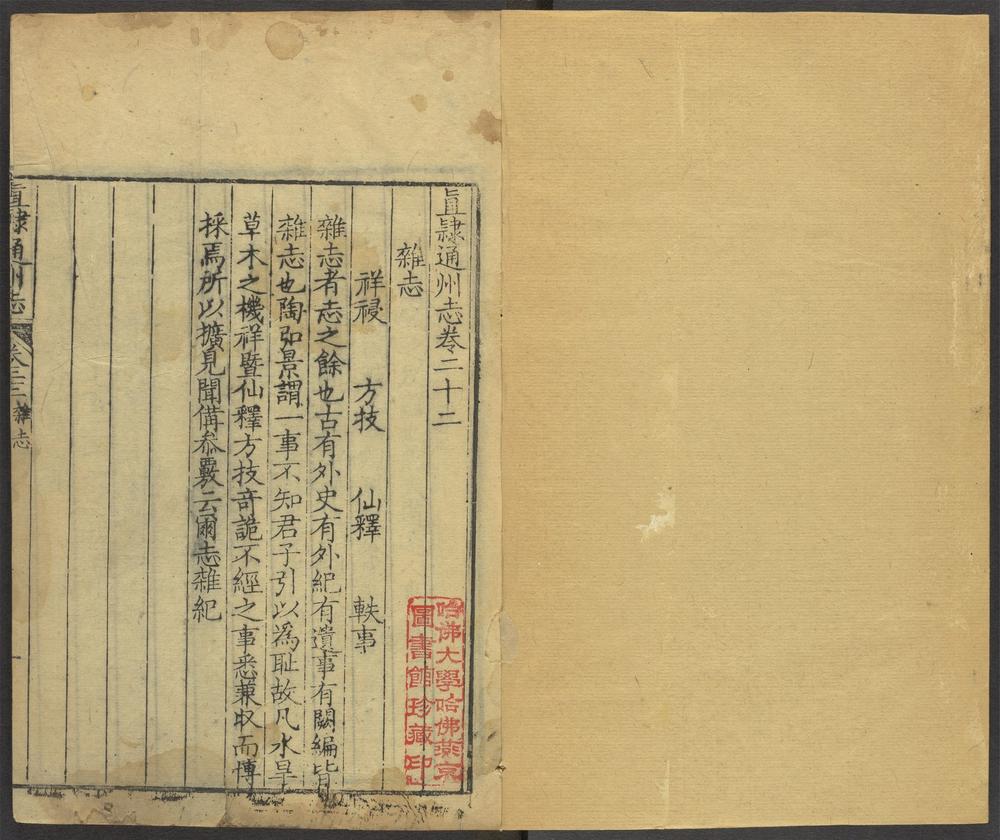 直隷通州志卷二十二
雜志
祥祲 方技 仙釋 軼事
雜志者志之餘也古有外史有外紀有遺事有闕編皆
雜志也陶弘景謂一事不知君子引以為恥故凡水旱
草木之機祥暨仙釋方技奇詭不經之事悉兼収而愽
採焉所以擴見聞備叅覈云爾志雜紀
直隷通州志 卷二十二 雜志
哈佛大學哈佛燕京
圖書館珍藏印